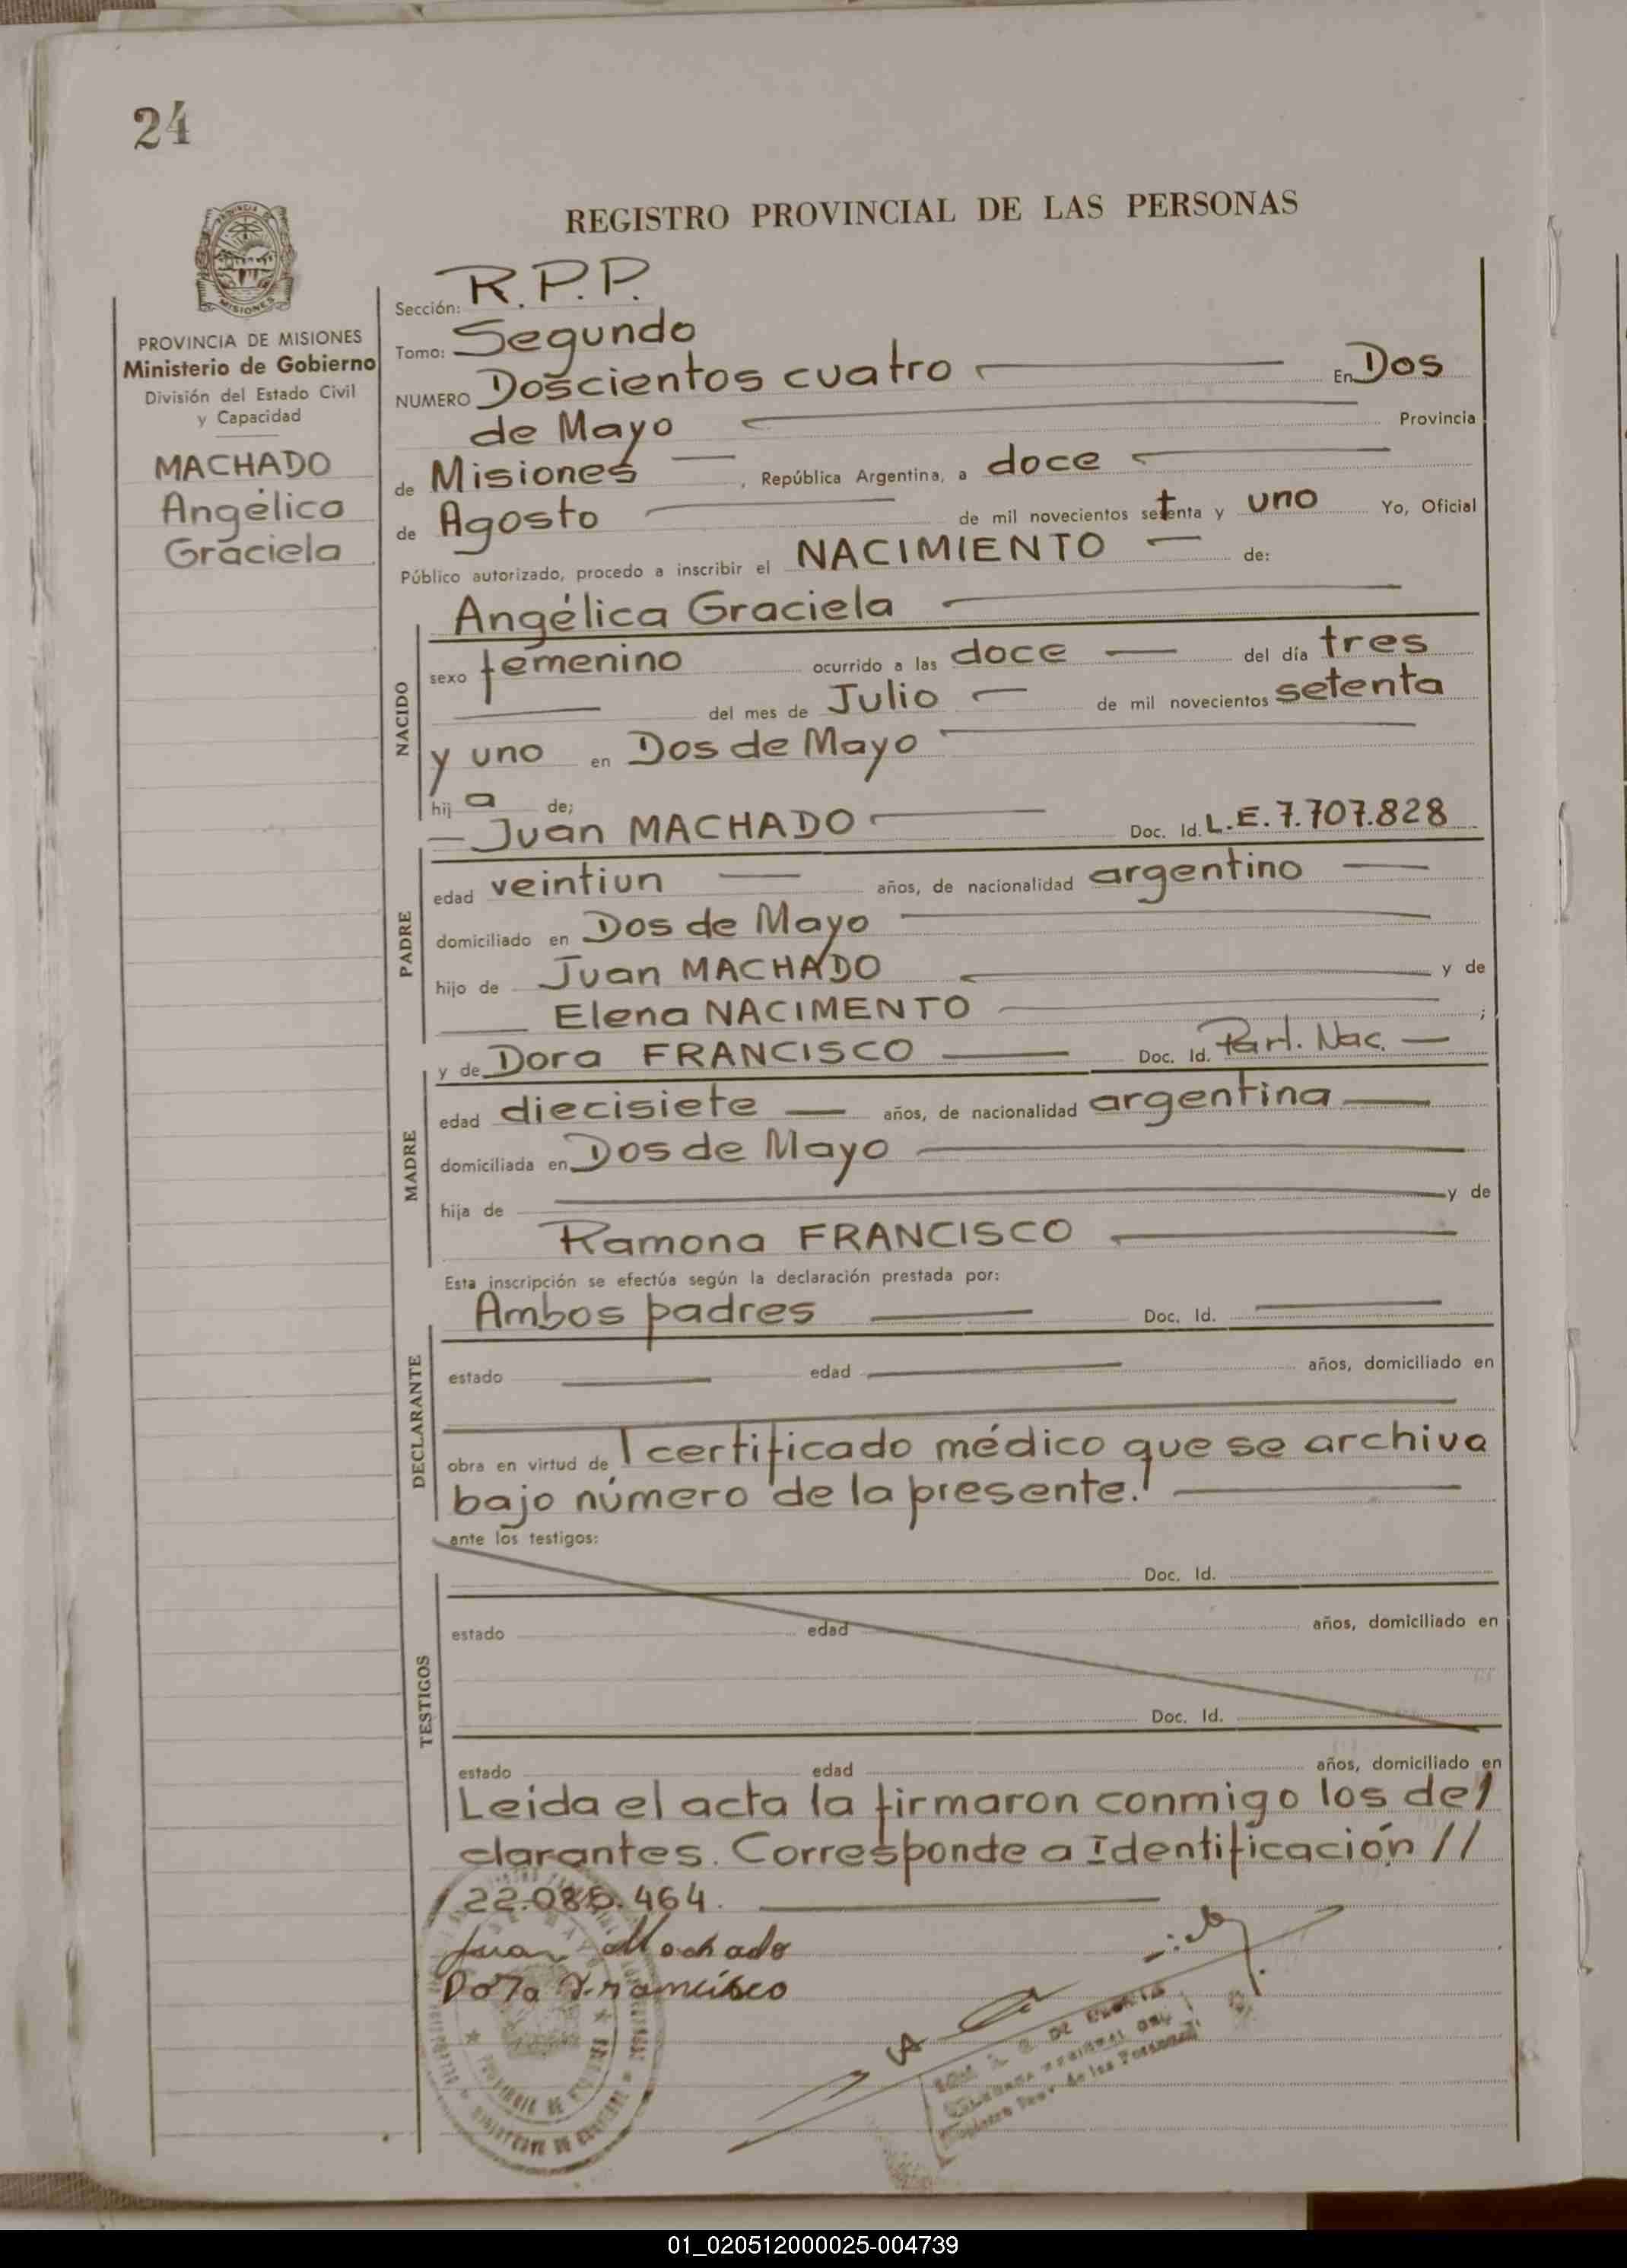 24
REGISTRO PROVINCIAL DE LAS PERSONAS
MISIONES
PROVINCIA DE MISIONES
Ministerio de Gobierno
División del Estado Civil
y Capacidad
MACHADO
Angélica
Graciela
Sección: R.P.P.
Tomo: Segundo
NUMERO Doscientos cuatro En Dos
de Mayo Provincia
de Misiones , República Argentina, a doce
de Agosto de mil novecientos setenta y uno Yo, Oficial
Público autorizado, procedo a inscribir el NACIMIENTO de:
Angélica Graciela
NACIDO
sexo femenino ocurrido a las doce del día tres
del mes de Julio de mil novecientos setenta
y uno en Dos de Mayo
hij a de;
Juan MACHADO Doc. Id. L.E. 7.707.828
PADRE
edad veintiun años, de nacionalidad argentino
domiciliado en Dos de Mayo
hijo de Juan MACHADO y de
Elena NACIMENTO ;
y de Dora FRANCISCO Doc. Id. Part. Nac.
MADRE
edad diecisiete años, de nacionalidad argentina
domiciliada en Dos de Mayo
hija de y de
Ramona FRANCISCO
Esta inscripción se efectúa según la declaración prestada por:
Ambos padres Doc. Id.
DECLARANTE
estado edad años, domiciliado en
obra en virtud de l certificado médico que se archiva
bajo número de la presente.
ante los testigos:
Doc. Id.
TESTIGOS
estado edad años, domiciliado en
Doc. Id.
estado edad años, domiciliado en
Leida el acta la firmaron conmigo los de/
clarantes. Corresponde a Identificación //
/ 22.085.464.
Juan Machado
Dora Francisco
01_020512000025-004739